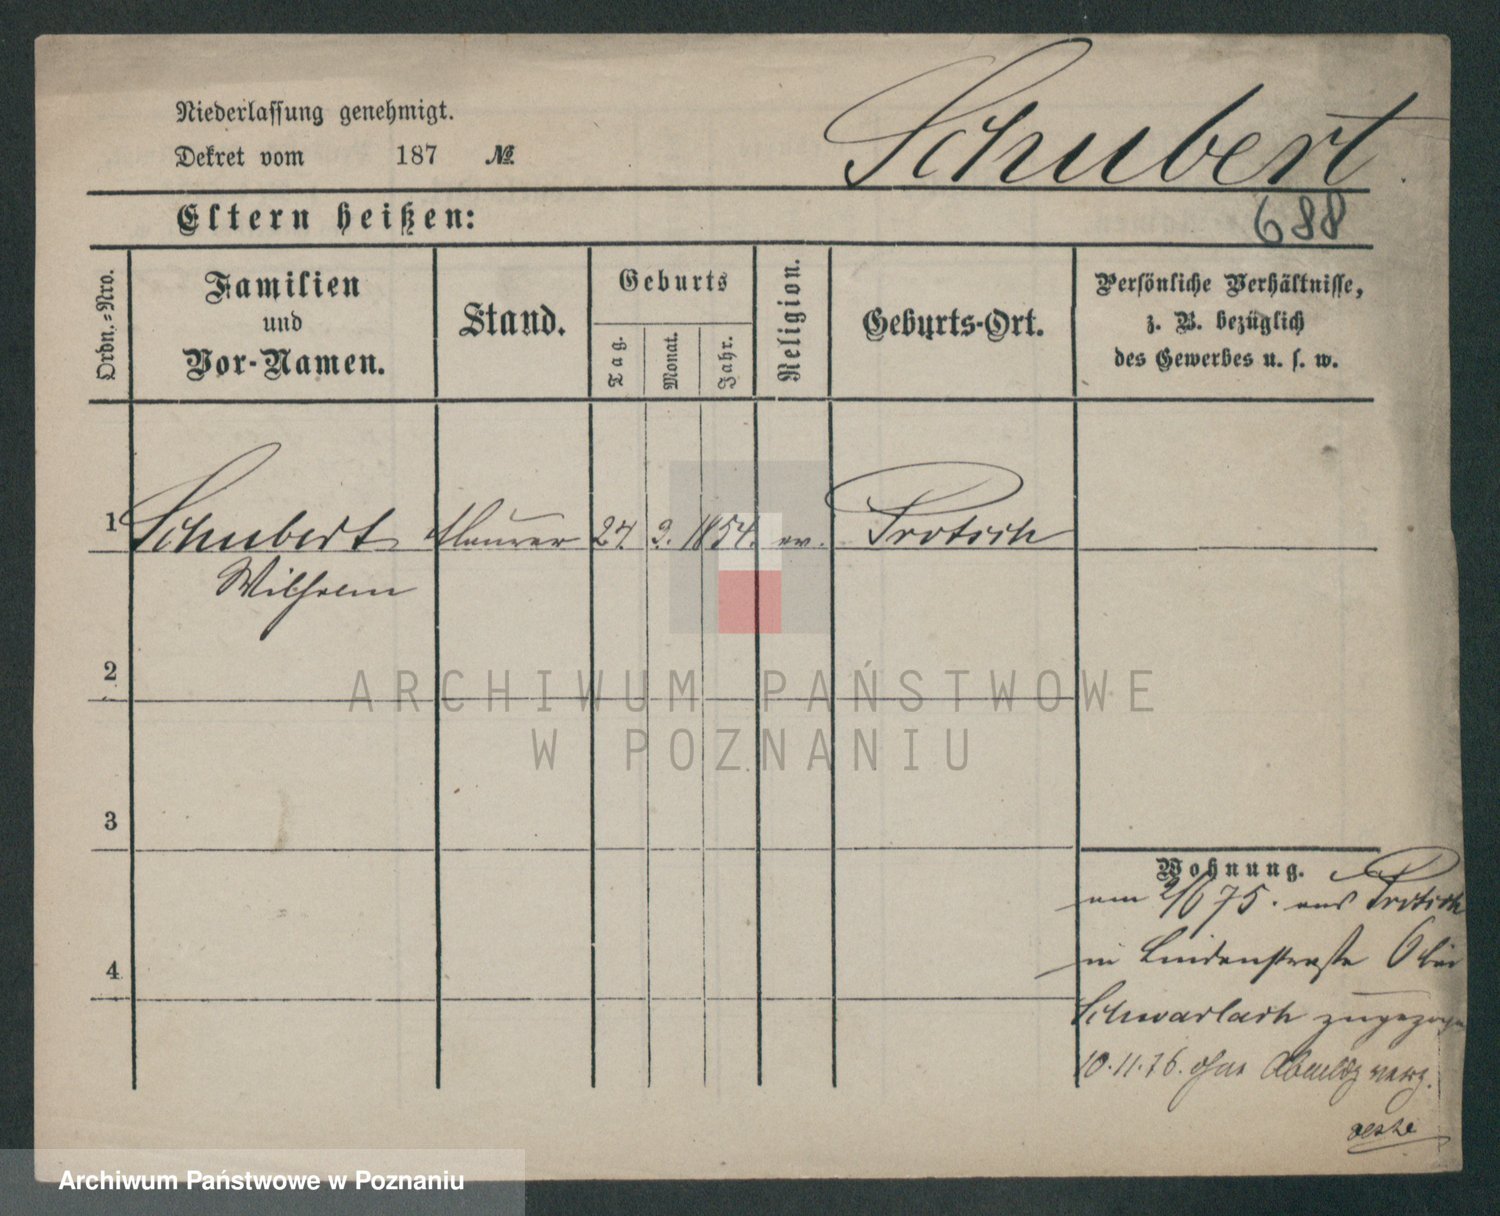 Schubert
Niederlassung genehmigt.
Dekret vom 187 №
688
Eltern heißen:
Ordn.-Nro.
Familien
und
Vor-Namen.
Stand.
Geburts
Tag.
Monat.
Jahr.
Religion.
Geburts-Ort.
Persönliche Verhältnisse,
z. B. bezüglich
des Gewerbes u. s. w.
1 Schubert Maurer 27. 2. 1854. ev. Protsch
Wilhelm
2
ARCHIWUM PAŃSTWOWE
W POZNANIU
3
Wohnung.
am 2/6 75. aus Protsch
in Lindenstraße 6 bei
4
zugezogen
10.11.76. ohne Abmeldg verz.
Archiwum Państwowe w Poznaniu